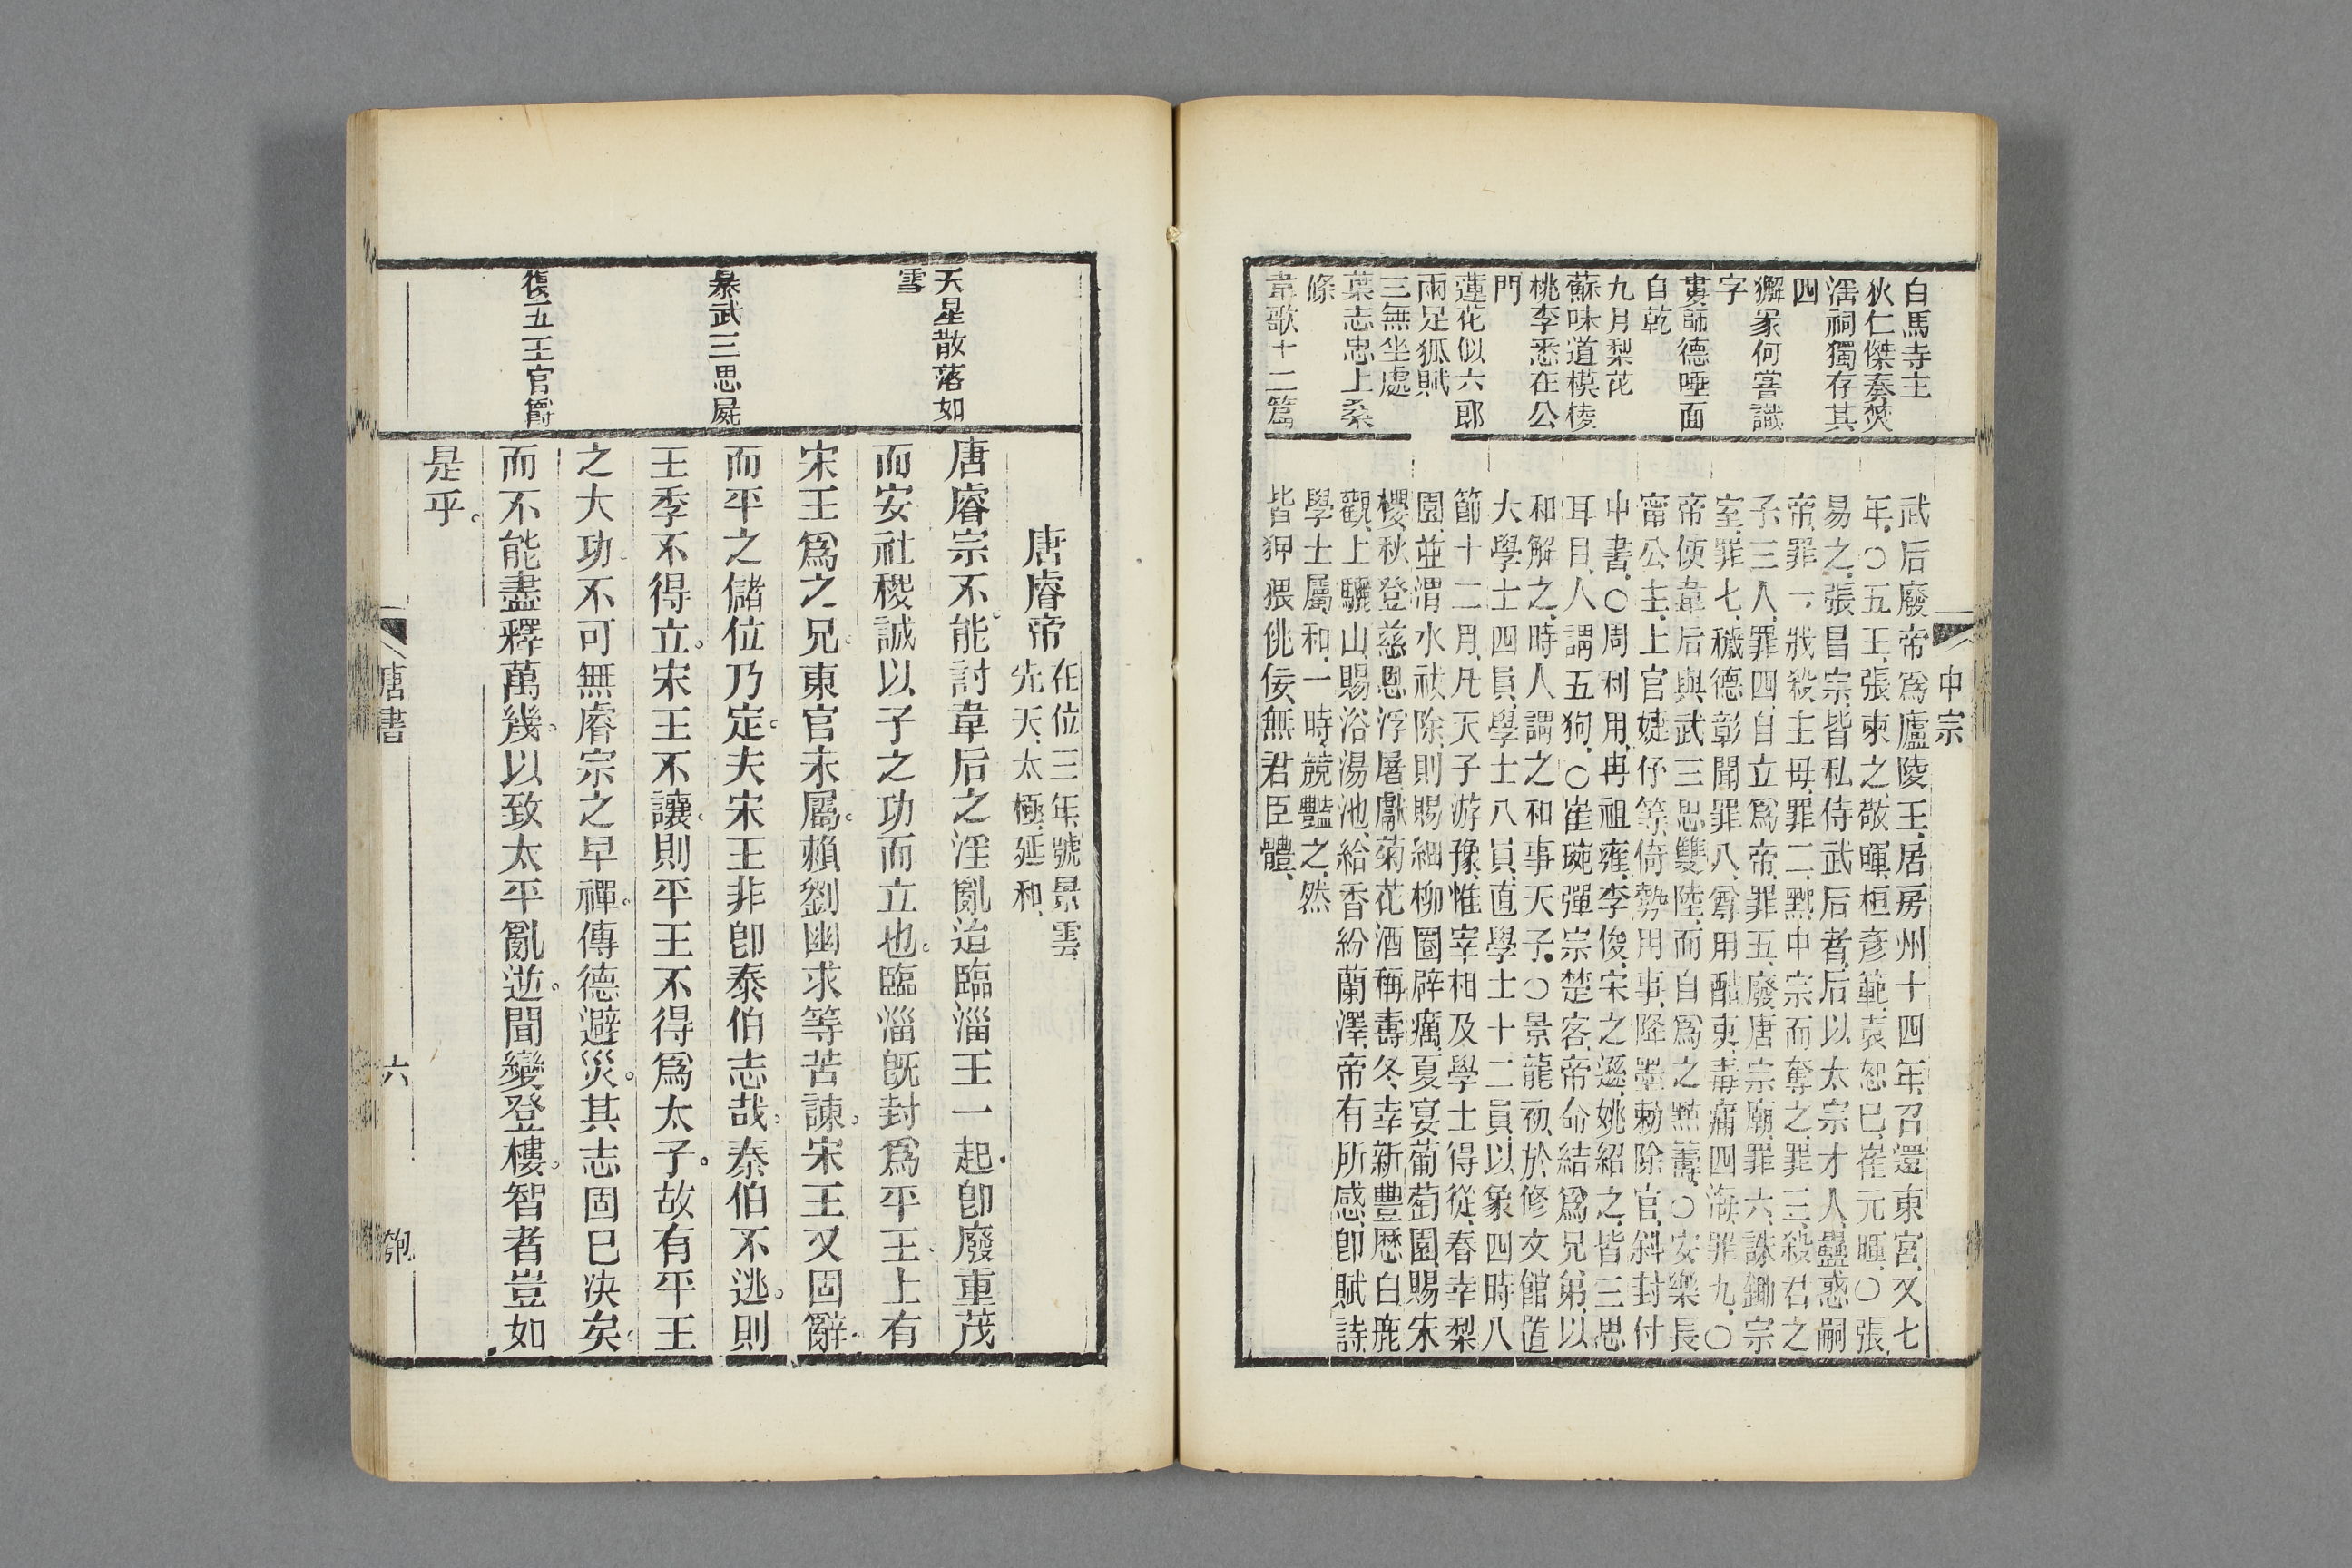 中宗
白馬寺主
狄仁傑奏焚
淫祠獨存其
四
獬豸何嘗識
字
婁師德唾面
自乾
九月梨花
蘇味道模棱
桃李悉在公
門
蓮花似六郎
兩足狐賦
三無坐處
葉志忠上桑
條
韋歌十二篇
武后廢帝爲廬陵王、居房州十四年、召還東宮、又七
年、○五王、張柬之、敬暉、桓彥範、袁恕已、崔元暐、○張
易之、張昌宗、皆私侍武后者、后以太宗才人、蠱惑嗣
帝、罪一、戕殺主母、罪二、黜中宗而奪之、罪三、殺君之
子三人、罪四、自立爲帝、罪五、廢唐宗廟、罪六、誅鋤宗
室、罪七、穢德彰聞、罪八、尊用酷吏、毒痡四海、罪九、○
帝使韋后與武三思雙陸、而自爲之㸃籌、○安樂長
甯公主、上官婕伃等、倚勢用事、降墨勅除官、斜封付
中書、○周利用、冉祖雍、李俊、宋之遜、姚紹之、皆三思
耳目、人謂五狗、○崔琬彈宗楚客、帝命結爲兄弟、以
和解之、時人謂之和事天子、○景龍初、於修文館置
大學士四員、學士八員、直學士十二員、以象四時八
節十二月、凡天子游豫、惟宰相及學士得從、春幸梨
園、並渭水祓除、則賜細柳圈辟癘、夏宴葡萄園、賜朱
櫻、秋登慈恩浮屠、獻菊花酒稱壽、冬幸新豐、歷白鹿
觀、上驪山、賜浴湯池、給香紛蘭澤、帝有所感、卽賦詩、
學士屬和、一時競豔之、然
皆狎猥佻佞、無君臣體、
天星散落如
雪
暴武三思屍
復五王官爵
唐睿帝 在位三年號景雲、
先天、太極、延和、
唐睿宗不能討韋后之淫亂迨臨淄王一起卽廢重茂
而安社稷誠以子之功而立也。臨淄旣封爲平王、上有
宋王爲之兄。東宮未屬。賴劉幽求等苦諫。宋王又固辭、
而平之儲位乃定。夫宋王非卽泰伯志哉。泰伯不逃。則
王季不得立。宋王不讓。則平王不得爲太子。故有平王
之大功、不可無睿宗之早禪。傳德避災。其志固巳决矣。
而不能盡釋萬幾。以致太平亂逆。聞變登樓。智者豈如
是乎。
唐書
六